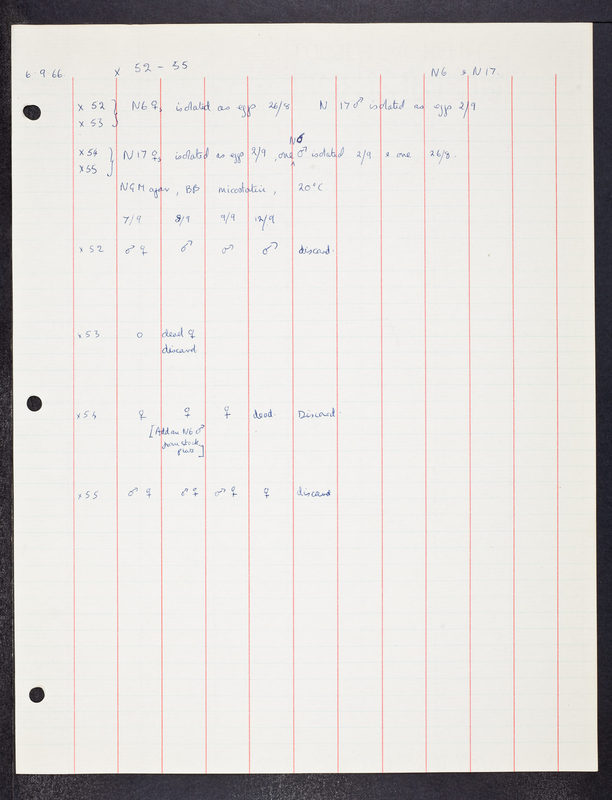 6 9 66. x 52 - 55 N6 x N17.
x 52 } N6 ♀s isolated as eggs 26/8 N 17 ♂ isolated as eggs 2/9
x 53
N6
x 54 } N17 ♀s isolated as eggs 2/9, one ^ ♂ isolated 2/9 & one 26/8.
x 55
NGM agar, BB micostatin, 20°C
7/9 8/9 9/9 12/9
x 52 ♂ ♀ ♂ ♂ ♂ discard.
x 53 0 dead ♀
discard
x 54 ♀ ♀ ♀ dead. Discard.
[Add an N6 ♂
from stock
plate]
x 55 ♂ ♀ ♂ ♀ ♂ ♀ ♀ discard